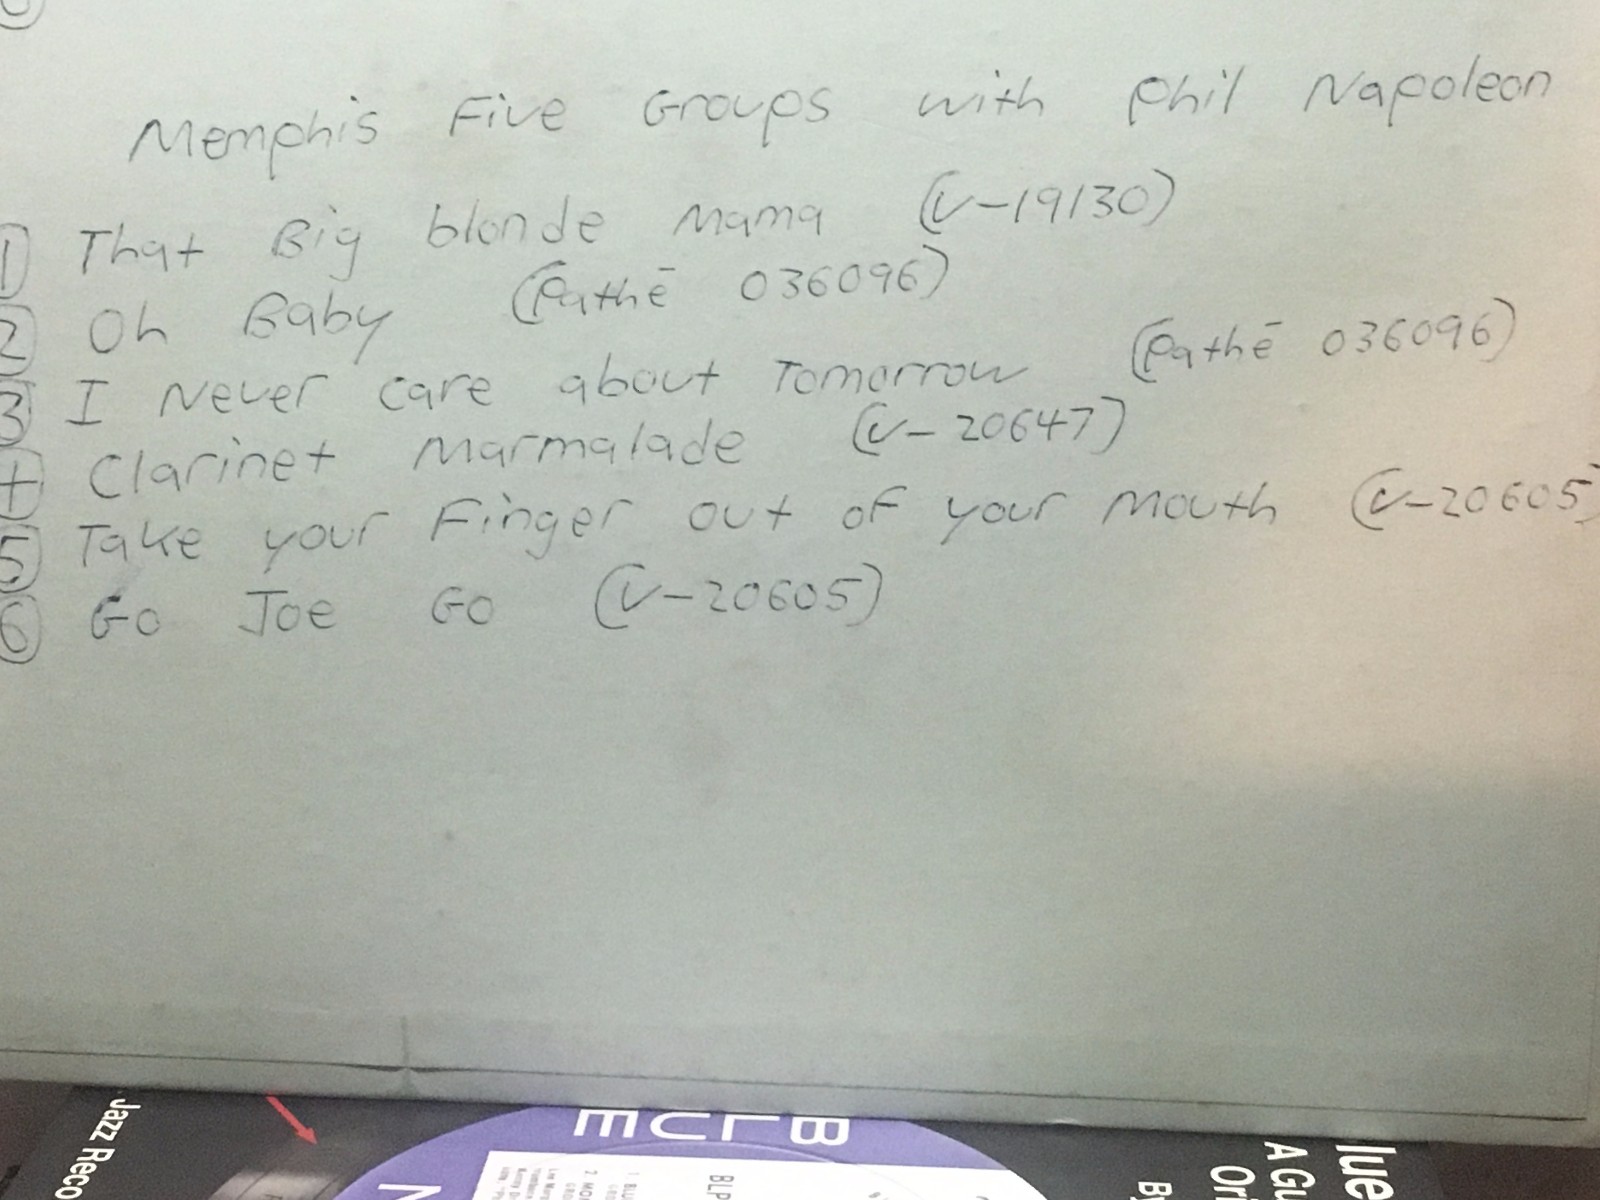 Memphis Five Groups with Phil Napoleon
① That Big blonde Mama (V-19130)
② Oh Baby (Pathē 036096)
③ I Never care about Tomorrow (Pathē 036096)
④ Clarinet Marmalade (V-20647)
⑤ Take your Finger out of your Mouth (V-20605)
⑥ Go Joe Go (V-20605)
Jazz Reco
BLUE
N
BLP
1 BLU
2 MOI
lue
A Gu
Ori
By